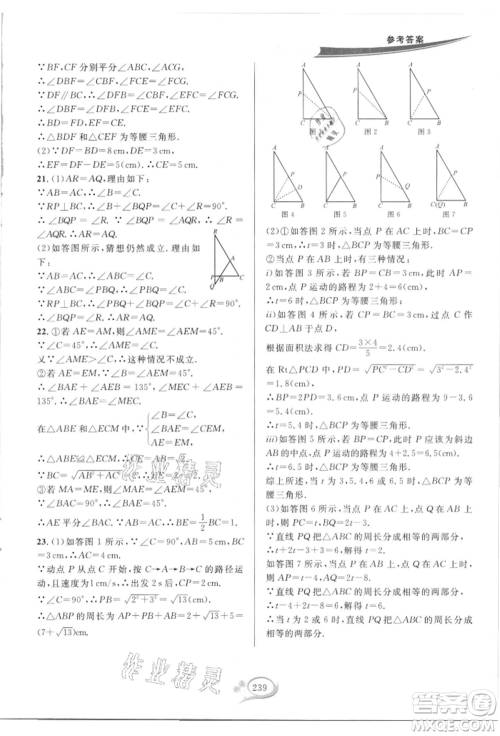 参考答案
∵BF,CF分别平分∠ABC,∠ACB,
∴∠DBF=∠CBF,∠ECF=∠BCF.
∵DF∥BC,∴∠DFB=∠CBF.
∴∠DBF=∠DFB,∠EFC=∠ECF.
∴BD=FD,EF=CE.
∴△BDF和△CEF为等腰三角形.
(2)∵DF=BD=8cm,
∴EF=DF-DE=5(cm).∴CE=5cm.
21.(1)AR=AQ,理由如下:
∵AB=AC,∴∠B=∠C.
∵RP⊥BC,∴∠C+∠R=90°,
∴∠BQP=∠R.
∵∠BQP=∠AQR,∴∠R=∠AQR.
∴AR=AQ.
(2)如答图所示,猜想仍然成立.理由如
下:
∵AB=AC,∴∠ABC=∠C.
∵∠ABC=∠PBQ,∴∠PBQ=∠C.
∵RP⊥BC,∴∠PBQ+∠BQP=90°,
∴∠BQP=∠PRC.∴AR=AQ.
22.①若AE=AM,则∠AME=∠AEM=
45°.
∵∠C=45°,∴∠AME=∠C.
又∵∠AME>∠C,∴这种情况不成立.
②若AE=EM.
∵∠B=∠AEM=45°,
∴∠BAE+∠AEB=135°,∠MEC+
∠AEB=135°.∴∠BAE=∠MEC.
∠B=∠C,
在△ABE和△ECM中,∵∠BAE=∠CEM,
AE=EM,
∴△ABE≌△ECM.∴CE=AB=
∴BE=BC-CE
③若MA=ME,则∠MAE=∠AEM=45°.
∵∠BAC=90°,∴∠BAE=45°.
∴AE平分∠BAC.∴BE=1/2BC=1.
23.(1)如答图1所示,∵∠C=90°,
∴AC=4cm.
∵动点P从点C开始,按C→A→B→C的路径运
动,且速度为1cm/s,∴出发2s后,CP=2cm.
∵∠C=90°,∴PB=√(2²+3²)=√13(cm).
∴△ABP的周长为AP+PB+AB=2+5+
√13=7+√13(cm).
A
C
B
P
图1
图2
图3
图4
图5
图6
C(Q)
图7
(2)①如答图2所示,当点P在边AC上,BC=CP
=3cm时,△BCP为等腰三角形.∴t=3.
②当点P在边AB上时,有三种情况:
i)如答图3所示,若BP=CB=3cm,此时AP=
2cm,P运动的路程为2+4=6(cm),
∴t=6时,△BCP为等腰三角形;
ii)如答图4所示,若CP=BC=3cm,过点C作
CD⊥AB于点D,
根据面积法求得CD=3×4/5=2.4(cm).
在Rt△PCD中,PD=√(PC²-CD²)=√(3²-2.4²)
=1.8(cm),
∴BP=2PD=3.6cm.∴P运动的路程为9-3.6=
5.4(cm).
∴t=5.4时,△BCP为等腰三角形;
iii)如答图5所示,若BP=CP,则P应该为斜边
AB的中点,P运动的路程为4+2.5=6.5(cm).
∴t=6.5时,△BCP为等腰三角形.
综上所述,当t为3或5.4或6或6.5时,△BCP为
等腰三角形.
(3)如答图6所示,当点P在AC上,点Q在AB上
时,则PC=t,BQ=2t-3.
∵直线PQ把△ABC的周长分成相等的两部分,
∴t+2t-3=3.∴t=2;
如答图7所示,当点P在AB上,点Q在AC上时,
则AP=t-4,AQ=2t-8.
∵直线PQ把△ABC的周长分成相等的两部分,
∴t-4+2t-8=6.∴t=6.
∴当t为2或6时,直线PQ把△ABC的周长分成
相等的两部分.
作业精灵
作业精灵
239
答案圈
MXQE.COM